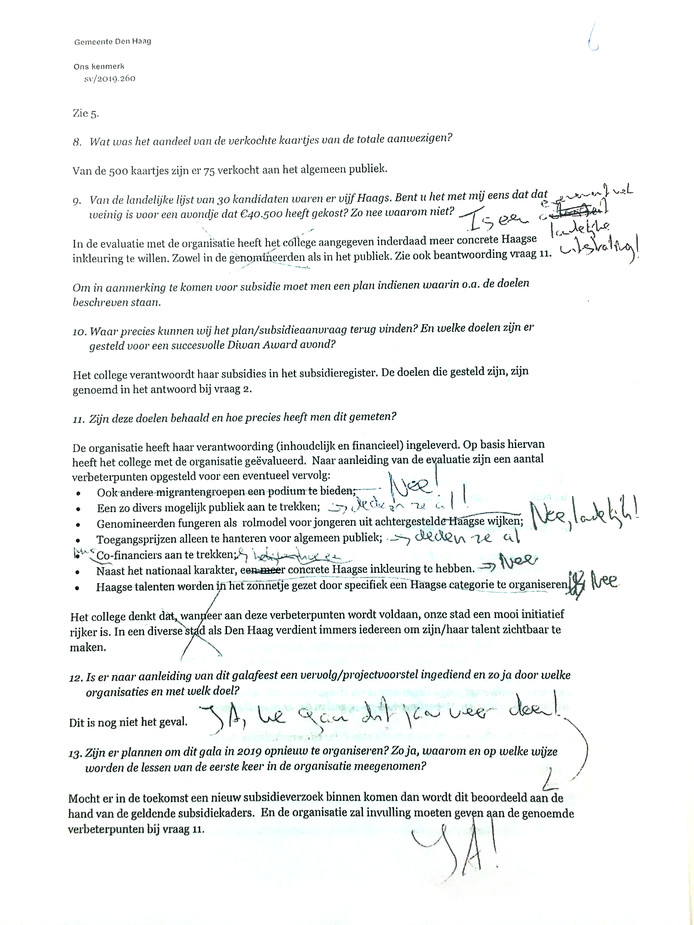 Gemeente Den Haag
Ons kenmerk
sv/2019.260
Zie 5.
8. Wat was het aandeel van de verkochte kaartjes van de totale aanwezigen?
Van de 500 kaartjes zijn er 75 verkocht aan het algemeen publiek.
9. Van de landelijke lijst van 30 kandidaten waren er vijf Haags. Bent u het met mij eens dat dat
weinig is voor een avondje dat €40.500 heeft gekost? Zo nee waarom niet?
Is een
landelijke
uitstraling!
In de evaluatie met de organisatie heeft het college aangegeven inderdaad meer concrete Haagse
inkleuring te willen. Zowel in de genomineerden als in het publiek. Zie ook beantwoording vraag 11.
Om in aanmerking te komen voor subsidie moet men een plan indienen waarin o.a. de doelen
beschreven staan.
10. Waar precies kunnen wij het plan/subsidieaanvraag terug vinden? En welke doelen zijn er
gesteld voor een succesvolle Diwan Award avond?
Het college verantwoordt haar subsidies in het subsidieregister. De doelen die gesteld zijn, zijn
genoemd in het antwoord bij vraag 2.
11. Zijn deze doelen behaald en hoe precies heeft men dit gemeten?
De organisatie heeft haar verantwoording (inhoudelijk en financieel) ingeleverd. Op basis hiervan
heeft het college met de organisatie geëvalueerd. Naar aanleiding van de evaluatie zijn een aantal
verbeterpunten opgesteld voor een eventueel vervolg:
• Ook andere migrantengroepen een podium te bieden; Nee!
• Een zo divers mogelijk publiek aan te trekken; → deden ze al!
• Genomineerden fungeren als rolmodel voor jongeren uit achtergestelde Haagse wijken; Nee, landelijk!
• Toegangsprijzen alleen te hanteren voor algemeen publiek; → deden ze al
• Co-financiers aan te trekken;
• Naast het nationaal karakter, een meer concrete Haagse inkleuring te hebben. → Nee
• Haagse talenten worden in het zonnetje gezet door specifiek een Haagse categorie te organiseren Nee
Het college denkt dat, wanneer aan deze verbeterpunten wordt voldaan, onze stad een mooi initiatief
rijker is. In een diverse stad als Den Haag verdient immers iedereen om zijn/haar talent zichtbaar te
maken.
12. Is er naar aanleiding van dit galafeest een vervolg/projectvoorstel ingediend en zo ja door welke
organisaties en met welk doel?
Dit is nog niet het geval. JA, we gaan dit jaar weer doen!
13. Zijn er plannen om dit gala in 2019 opnieuw te organiseren? Zo ja, waarom en op welke wijze
worden de lessen van de eerste keer in de organisatie meegenomen?
Mocht er in de toekomst een nieuw subsidieverzoek binnen komen dan wordt dit beoordeeld aan de
hand van de geldende subsidiekaders. En de organisatie zal invulling moeten geven aan de genoemde
verbeterpunten bij vraag 11.
JA!